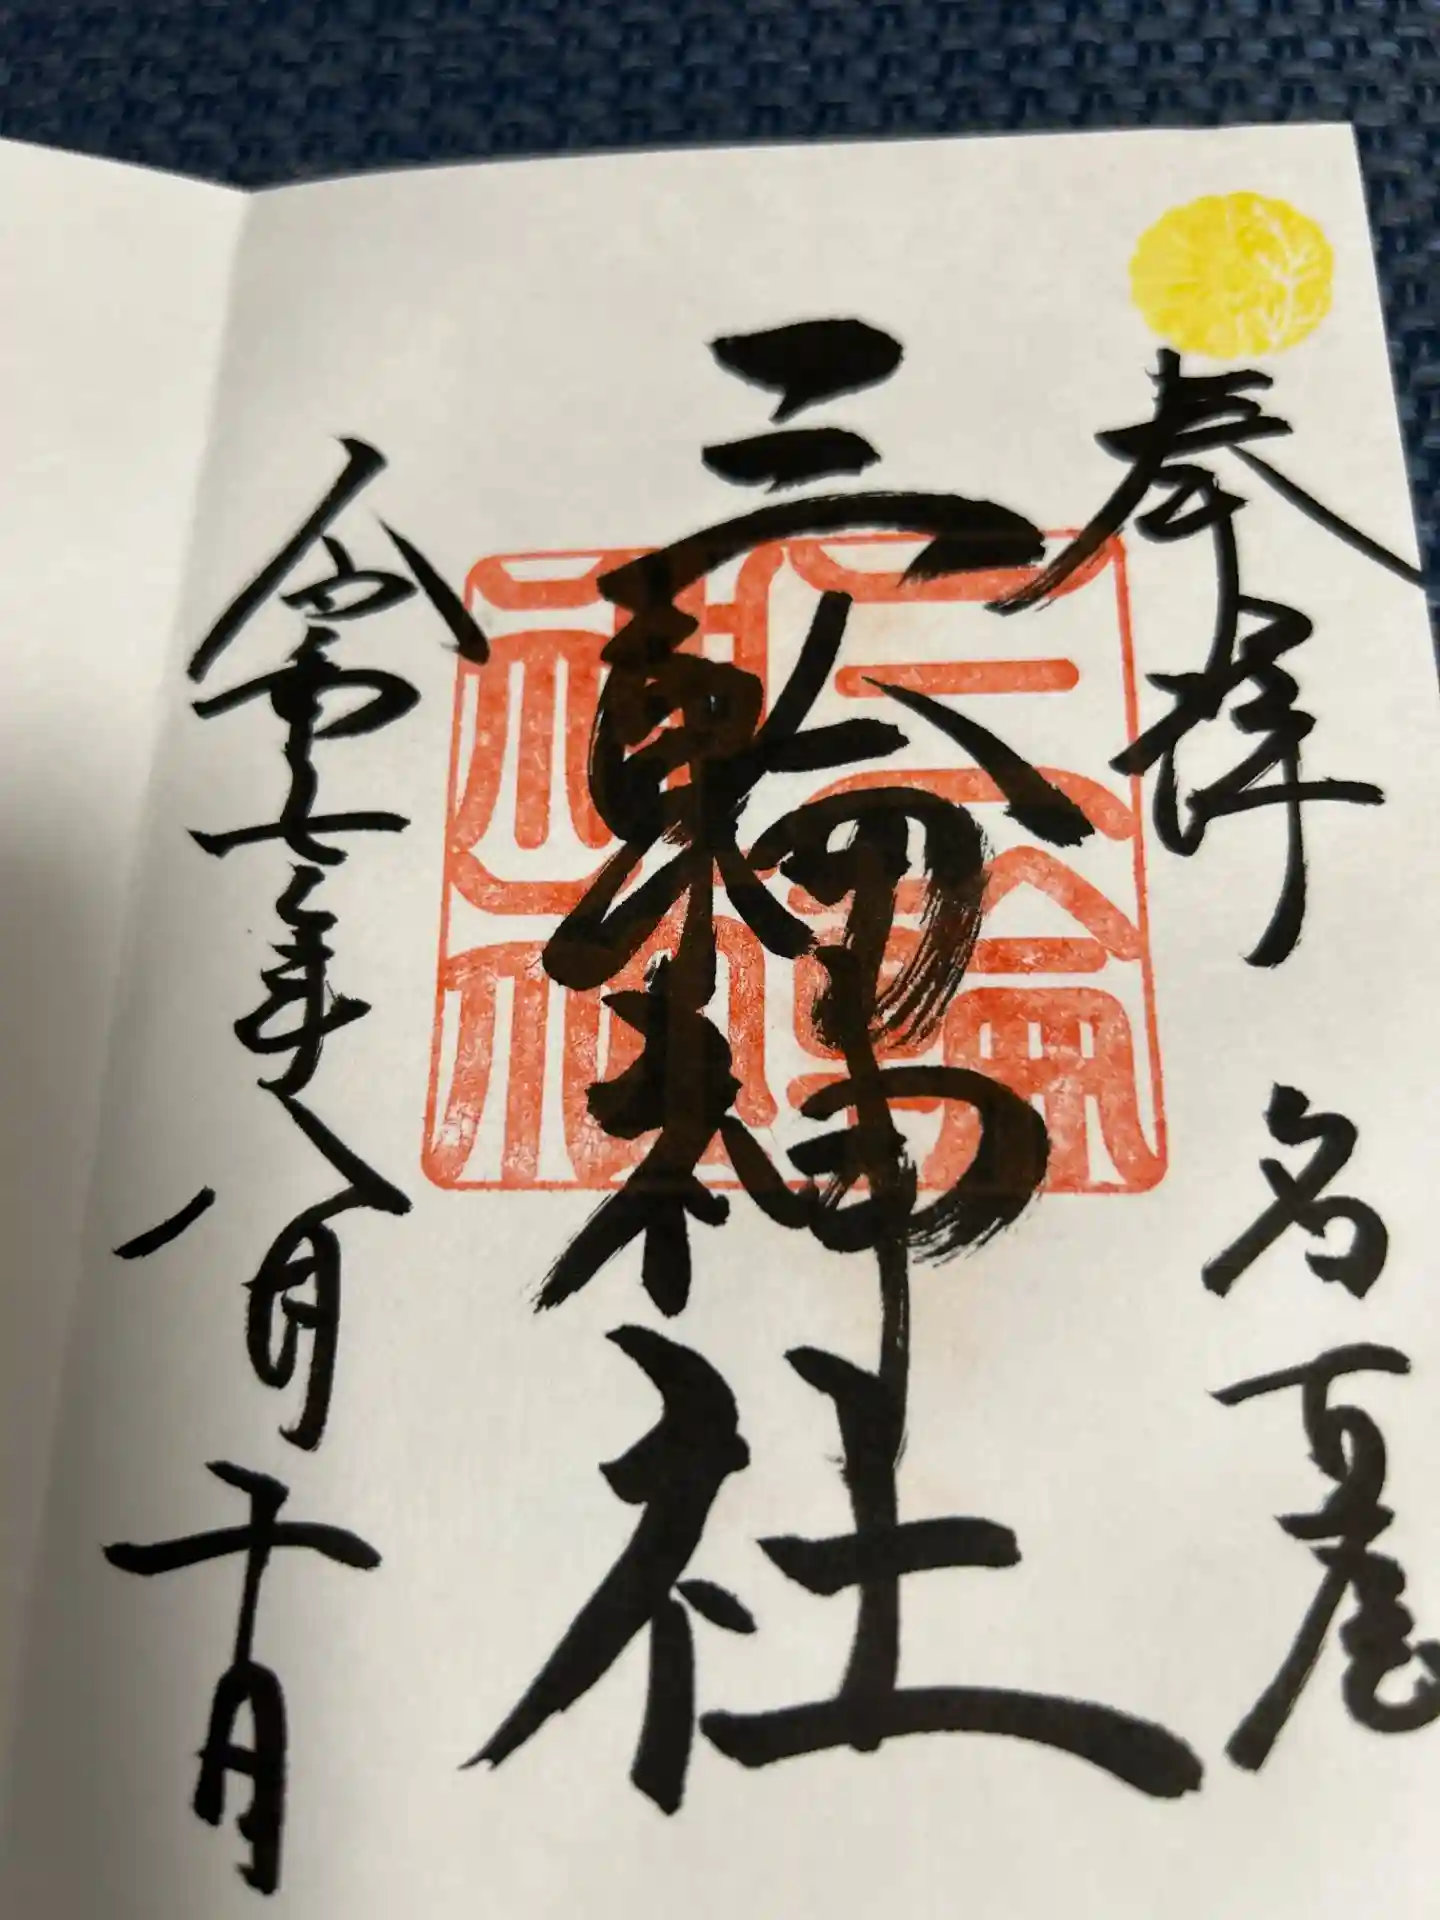 奉拝 名古屋
三輪神社
令和七年八月十日
三輪
神社